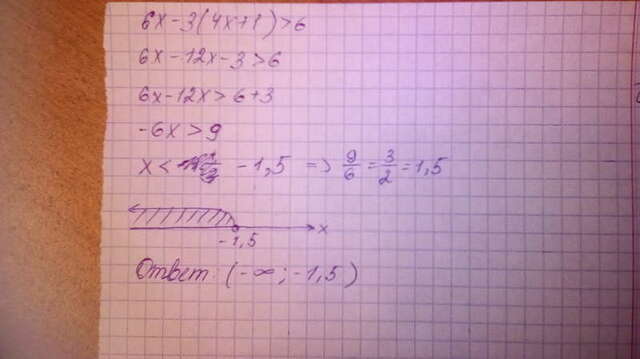 6x - 3(4x+1) > 6
6x - 12x - 3 > 6
6x - 12x > 6 + 3
-6x > 9
x < -1,5 => 9/6 = 3/2 = 1,5
-1,5 x
Ответ: (-∞; -1,5)